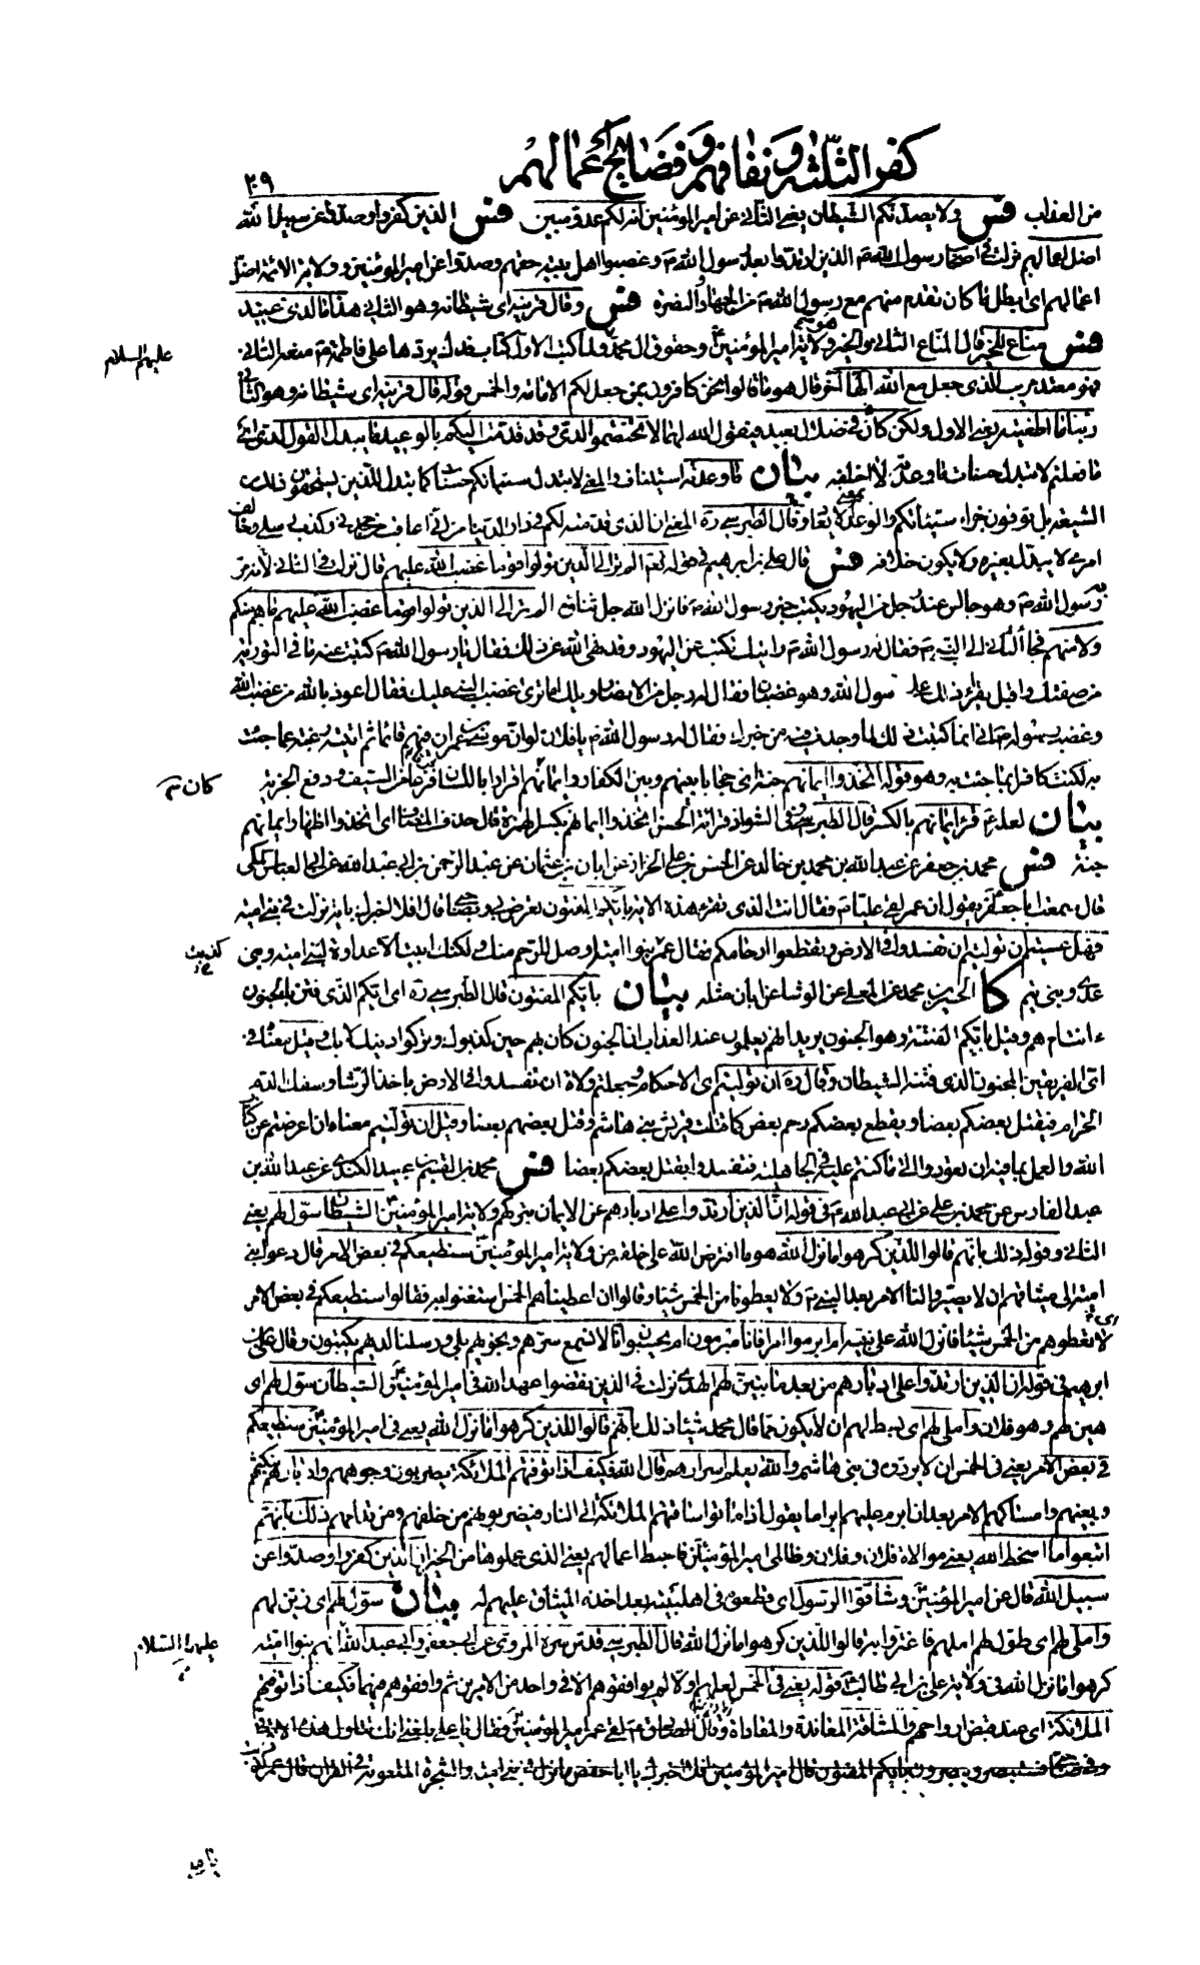 كفر الثلثة ونفاقهم وفضايح أعمالهم
٢٠٩
من العذاب فس ولا يصدنكم الشيطان يعني الثاني عن امير المؤمنين انه لكم عدو مبين فس الذين كفروا وصدوا عن سبيل الله
اضل اعمالهم نزلت في اصحاب رسول الله ص الذين ارتدوا بعد رسول الله ص وغصبوا اهل بيته حقهم وصدوا عن امير المؤمنين وولاية الائمة اضل
اعمالهم اى ابطل ما كان تقدم منهم مع رسول الله ص من الجهاد والنصرة فس وقال قرينه اى شيطانه وهو الثانى هذا ما لدى عتيد
فس مناع للخير قال المناع الثانى والخير ولاية امير المؤمنين وحقوق ال محمد ولما كتب الاول كتاب فدك يردها على فاطمة ع منعه الثانى
عليهم السلام
فهو معتد مريب الذى جعل مع الله الها آخر قال هو ما قالوا نحن كافرون بمن جعل لكم الامامة والخمس قوله قال قرينه اى شيطانه وهو الثانى
ربنا ما اطغيته يعنى الاول ولكن كان فى ضلال بعيد فيقول الله لهما لا تختصموا لدى وقد قدمت اليكم بالوعيد ما يبدل القول لدى اى
ما فعلتم لا يبدل حسنات ما وعدته لا اخلفه بيان ما وعدته استيناف والمعنى لا تبدل سيئاتكم حسنات كما تبدل للذين يستحقون ذلك من
الشيعة بل توفون جزاء سيئاتكم وقال الطبرسى ره المعنى ان الذى قدمته لكم فى دار الدنيا من انى اعاقب من جحدنى وكذب رسلى وخالف
امرى لا يبدل بغيره ولا يكون خلافه فس قال على بن ابراهيم فى قوله تعالى الم تر الى الذين تولوا قوما غضب الله عليهم قال نزلت فى الثانى لانه مر
به رسول الله ص وهو جالس عند رجل من اليهود يكتب خبر رسول الله ص فانزل الله جل ثناؤه الم تر الى الذين تولوا قوما غضب الله عليهم ما هم منكم
ولا منهم فجاء الثانى الى النبى ص فقال له رسول الله ص رايتك تكتب عن اليهود وقد نهى الله عن ذلك فقال يا رسول الله ص كتبت عنه ما فى التورية
من صفتك واقبل يقرا ذلك على رسول الله وهو غضبان فقال له رجل من الانصار ويلك اما ترى غضب النبى عليك فقال اعوذ بالله من غضب الله
وغضب رسوله انى انما كتبت ذلك لما وجدت فيه من خبرك فقال له رسول الله ص يا فلان لو ان موسى بن عمران فيهم قائما ثم اتيته رغبة عما جئت
به لكنت كافرا بما جئت به وهو قوله اتخذوا ايمانهم جنة اى حجابا بينهم وبين الكفار وايمانهم اقرارا باللسان فرقا من السيف ورفع الجزية
كان ص
بيان لعله ع قرا ايمانهم بالكسر قال الطبرسى وفى الشواذ قراءة الحسن اتخذوا ايمانهم بكسر الهمزة قال حذف المضاف اى اتخذوا اظهار ايمانهم
جنة فس محمد بن جعفر عن عبد الله بن محمد بن خالد عن الحسن بن على الخزاز عن ابان بن عثمان عن عبد الرحمن بن ابى عبد الله عن ابى العباس المكى
قال سمعت ابا جعفر يقول ان عمر لقى عليا ع فقال انت الذى تقرء هذه الاية بايكم المفتون تعرض بى وبصاحبى قال افلا اخبرك باية نزلت فى بنى امية
فهل عسيتم ان توليتم ان تفسدوا فى الارض وتقطعوا ارحامكم فقال عمر بنوا امية اوصل للرحم منك ولكنك اثبت العداوة لبنى امية وبنى
كذبت
عدى وبنى تيم كا الحسين بن محمد عن المعلى عن الوشا عن ابان مثله بيان بايكم المفتون قال الطبرسى ره اى ايكم الذى فتن بالجنون
ءانت ام هم وقيل بايكم الفتنة وهو الجنون يريد انهم يعلمون عند العذاب ان الجنون كان بهم حين كذبوك وتركوا دينك لا بك وقيل معناه فى
اى الفريقين المجنون الذى فتنه الشيطان وقال ره ان توليتم اى الاحكام وجعلتم ولاة ان تفسدوا فى الارض باخذ الرشا وسفك الدم
الحرام فيقتل بعضكم بعضا ويقطع بعضكم رحم بعض كما قتلت قريش بنى هاشم وقتل بعضهم بعضا وقيل ان توليتم معناه ان اعرضتم عن كتاب
الله والعمل بما فيه ان تعودوا الى ما كنتم عليه فى الجاهلية فتفسدوا بقتل بعضكم بعضا فس محمد بن القسم بن عبيد الكندى عن عبد الله بن
عبد الفارس عن محمد بن على عن ابى عبد الله ع فى قوله ان الذين ارتدوا على ادبارهم عن الايمان بتركهم ولاية امير المؤمنين الشيطان سول لهم يعنى
الثانى وقوله ذلك بانهم قالوا للذين كرهوا ما نزل الله هو ما افترض الله على خلقه من ولاية امير المؤمنين سنطيعكم فى بعض الامر قال دعوا بنى
امية الى ميثاقهم ان لا يصيروا لنا الامر بعد النبى ص ولا يعطونا من الخمس شيئا وقالوا ان اعطيناهم الخمس استغنوا به فقالوا سنطيعكم فى بعض الامر
لا تعطوهم من الخمس شيئا فانزل الله على نبيه ام ابرموا امرا فانا مبرمون ام يحسبون انا لا نسمع سرهم ونجويهم بلى ورسلنا لديهم يكتبون وقال على بن
ابراهيم فى قوله ان الذين ارتدوا على ادبارهم من بعد ما تبين لهم الهدى نزلت فى الذين نقضوا عهد الله فى امير المؤمنين الشيطان سول لهم اى
هين لهم وهو فلان واملى لهم اى بسط لهم ان لا يكون مما قال محمد شيئا ذلك بانهم قالوا للذين كرهوا ما نزل الله يعنى فى امير المؤمنين سنطيعكم
فى بعض الامر يعنى فى الخمس ان لا يردوه فى بنى هاشم والله يعلم اسرارهم قال الله فكيف اذا توفتهم الملائكة يضربون وجوههم وادبارهم بنكثهم
وبغيهم وامساكهم الامر بعد ان ابرم عليهم ابراما يقول اذا ماتوا ساقتهم الملئكة الى النار فيضربونهم من خلفهم ومن قدامهم ذلك بانهم
اتبعوا ما اسخط الله يعنى موالاة فلان وفلان وظالمى امير المؤمنين فاحبط اعمالهم يعنى الذى عملوها من الخيرات الذين كفروا وصدوا عن
سبيل الله قال عن امير المؤمنين وشاقوا الرسول اى قطعوه فى اهل بيته بعد اخذه الميثاق عليهم له بيان سول لهم اى زين لهم
واملى لهم اى طول لهم املهم فاغتروا به قالوا للذين كرهوا ما نزل الله قال الطبرسى قدس سره المروى عن ابى جعفر وابى عبد الله انهم بنوا امية
عليهما السلام
كرهوا ما نزل الله فى ولاية على بن ابى طالب قوله يعنى فى الخمس لعلهم اولا لم يوافقوهم الا فى واحد من الامرين ثم وافقوهم فيهما فكيف اذا توفتهم
الملائكة اى عند قبض ارواحهم والمشاقة المعاندة والمعاداة وقال الصادق ع لقى عمر امير المؤمنين فقال يا على بلغنى انك تتاول هذه الاية فى
وفى صاحبى فستبصر ويبصرون بايكم المفتون قال امير المؤمنين افلا اخبرك يا ابا حفص ما نزل فى بنى امية والشجرة الملعونة فى القران قال عمر كذبت